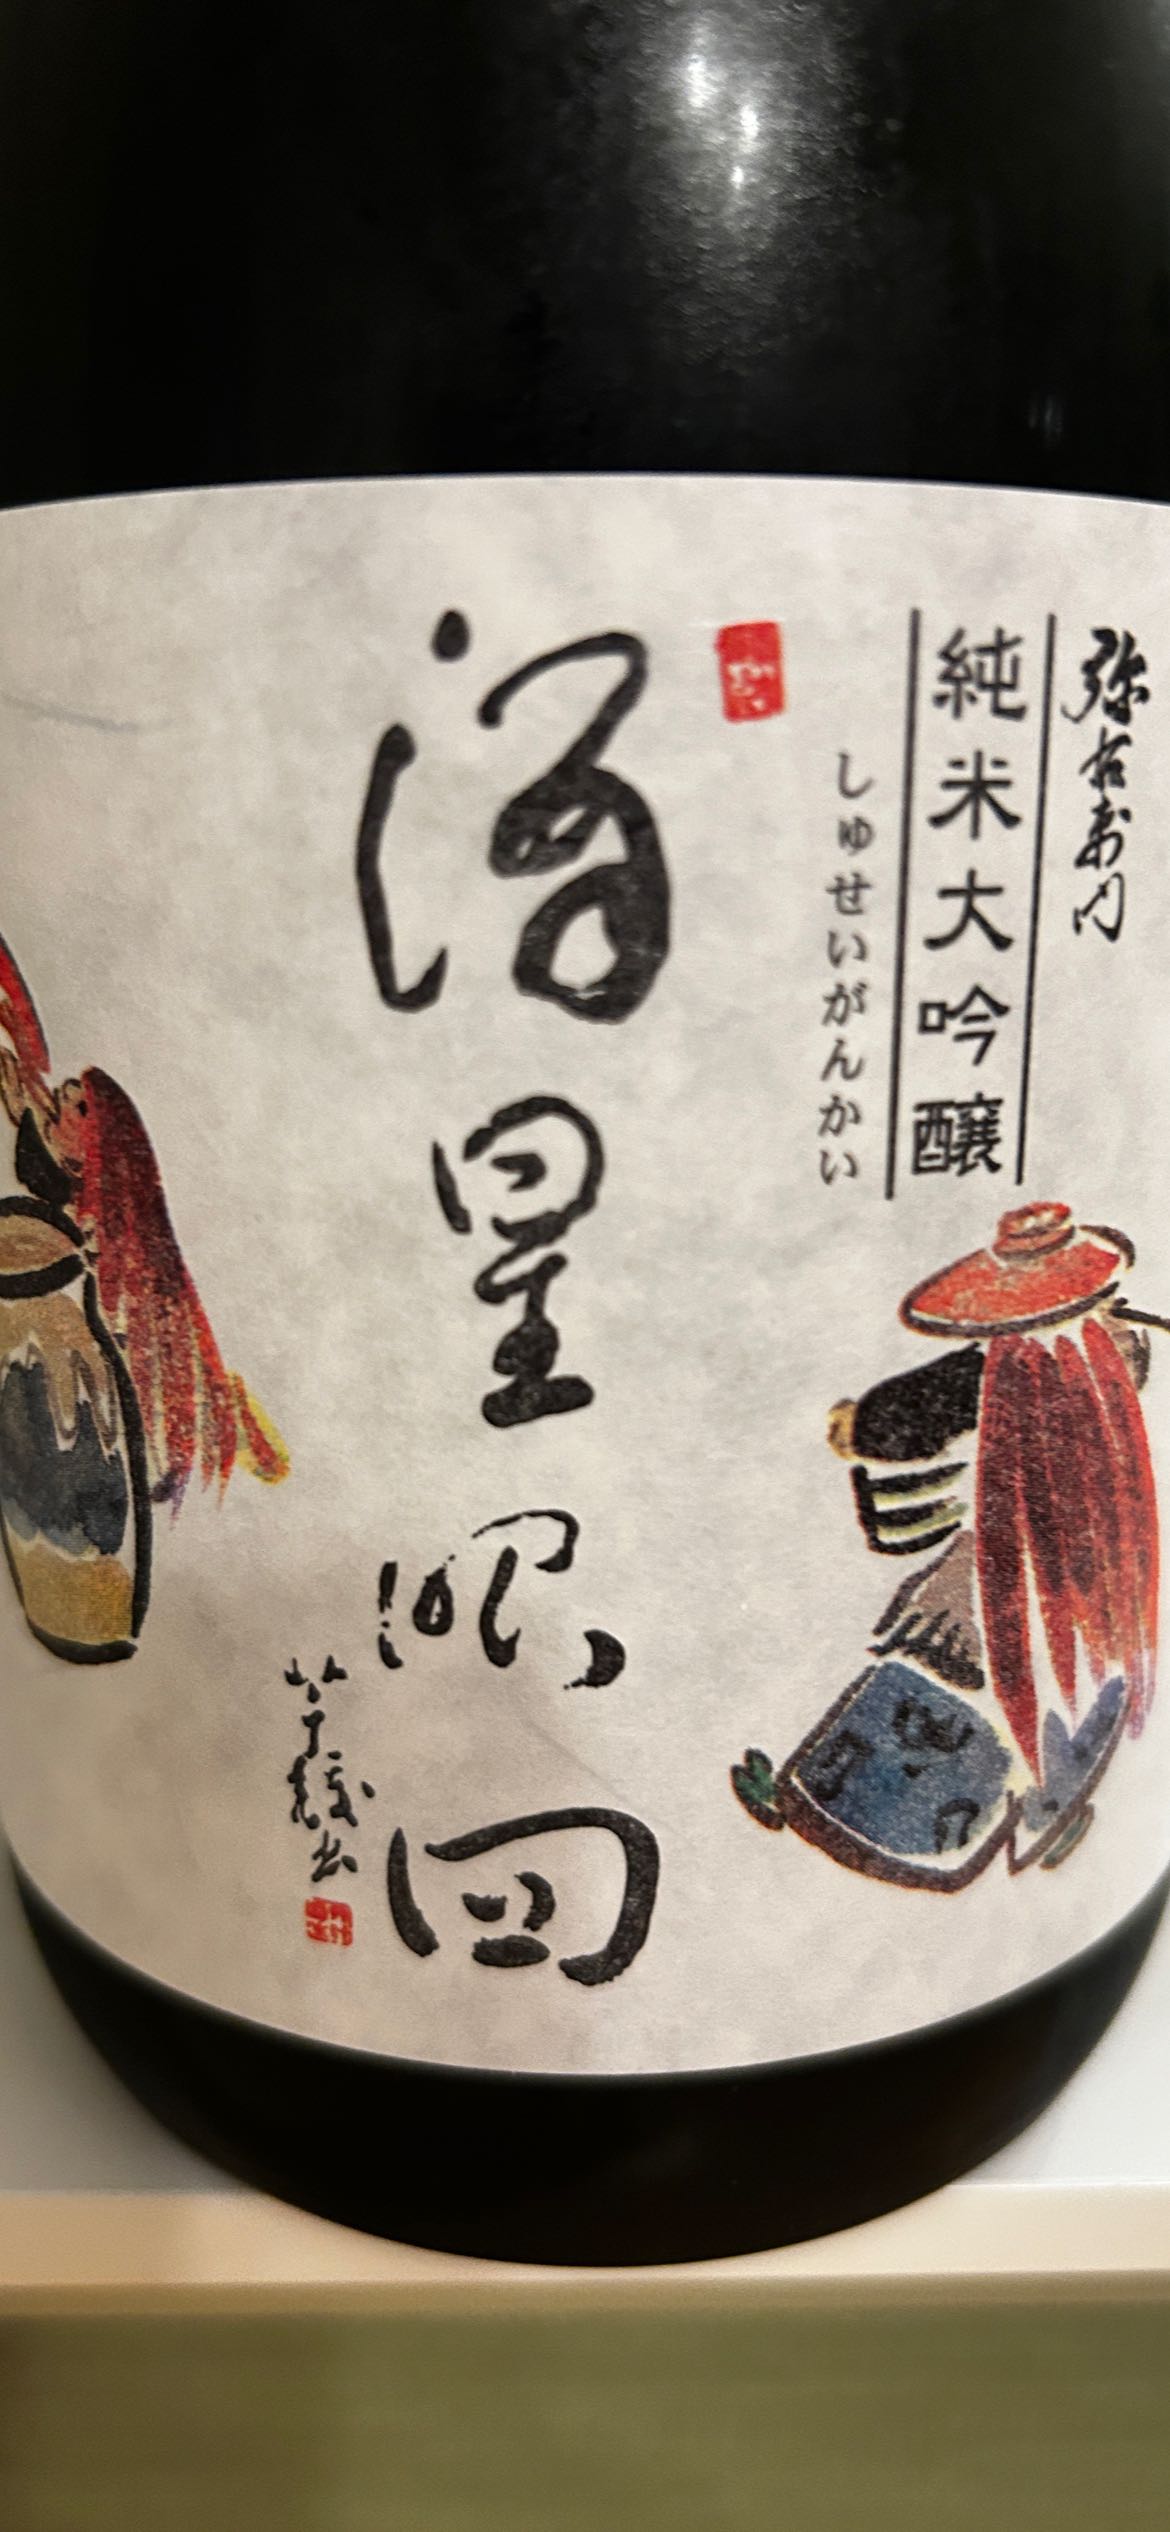 弥右衛門
純米大吟醸
しゅせいがんかい
酒星眼回